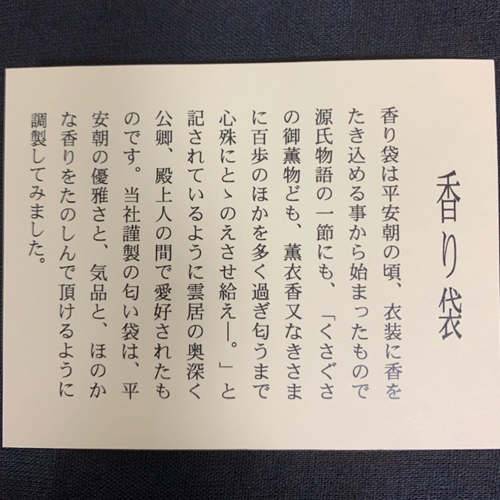 香り袋
香り袋は平安朝の頃、衣装に香を
たき込める事から始まったもので
源氏物語の一節にも、「くさぐさ
の御薫物ども、薫衣香又なきさま
に百歩のほかを多く過ぎ匂うまで
心殊にとゝのえさせ給えー。」と
記されているように雲居の奥深く
公卿、殿上人の間で愛好されたも
のです。当社謹製の匂い袋は、平
安朝の優雅さと、気品と、ほのか
な香りをたのしんで頂けるように
調製してみました。